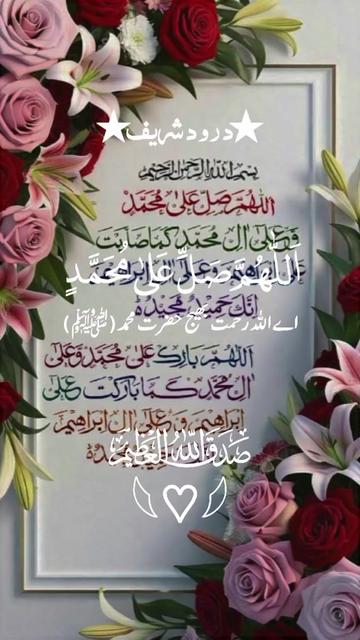 ★درود شریف★
بسم الله الرحمن الرحيم
اللهم صل على محمد
وعلى ال محمد كما صليت
على ابراهيم وعلى ال ابراهيم
اَللّٰهُمَّ صَلِّ عَلٰى مُحَمَّدٍ
انك حميد مجيد
اے اللہ رحمت بھیج حضرت محمد (ﷺ)
اللهم بارك على محمد وعلى
ال محمد كما باركت على
ابراهيم وعلى ال ابراهيم
صدق الله العظيم